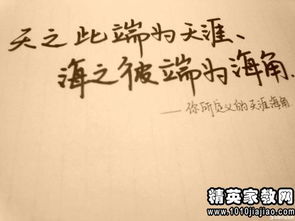 天之此端为天涯、
海之彼端为海角.
——你所定义的天涯海角
精英家教网
www.1010jiajiao.com